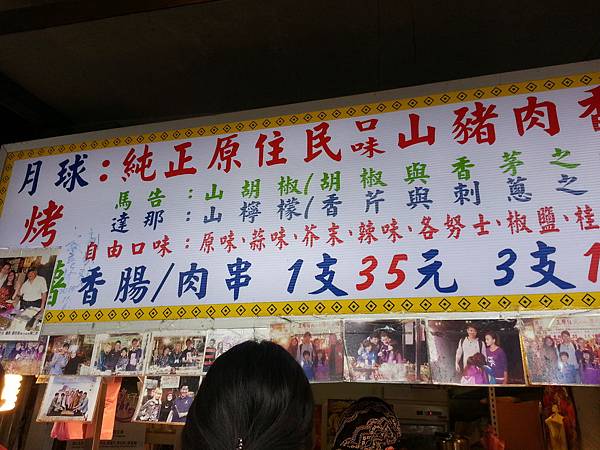 月球：純正原住民口味山豬肉香
烤
馬告：山胡椒/胡椒與香茅之
達那：山檸檬/香芹與刺蔥之
自由口味：原味、蒜味、芥末、辣味、各努士、椒鹽、桂
香腸/肉串 1支35元 3支1